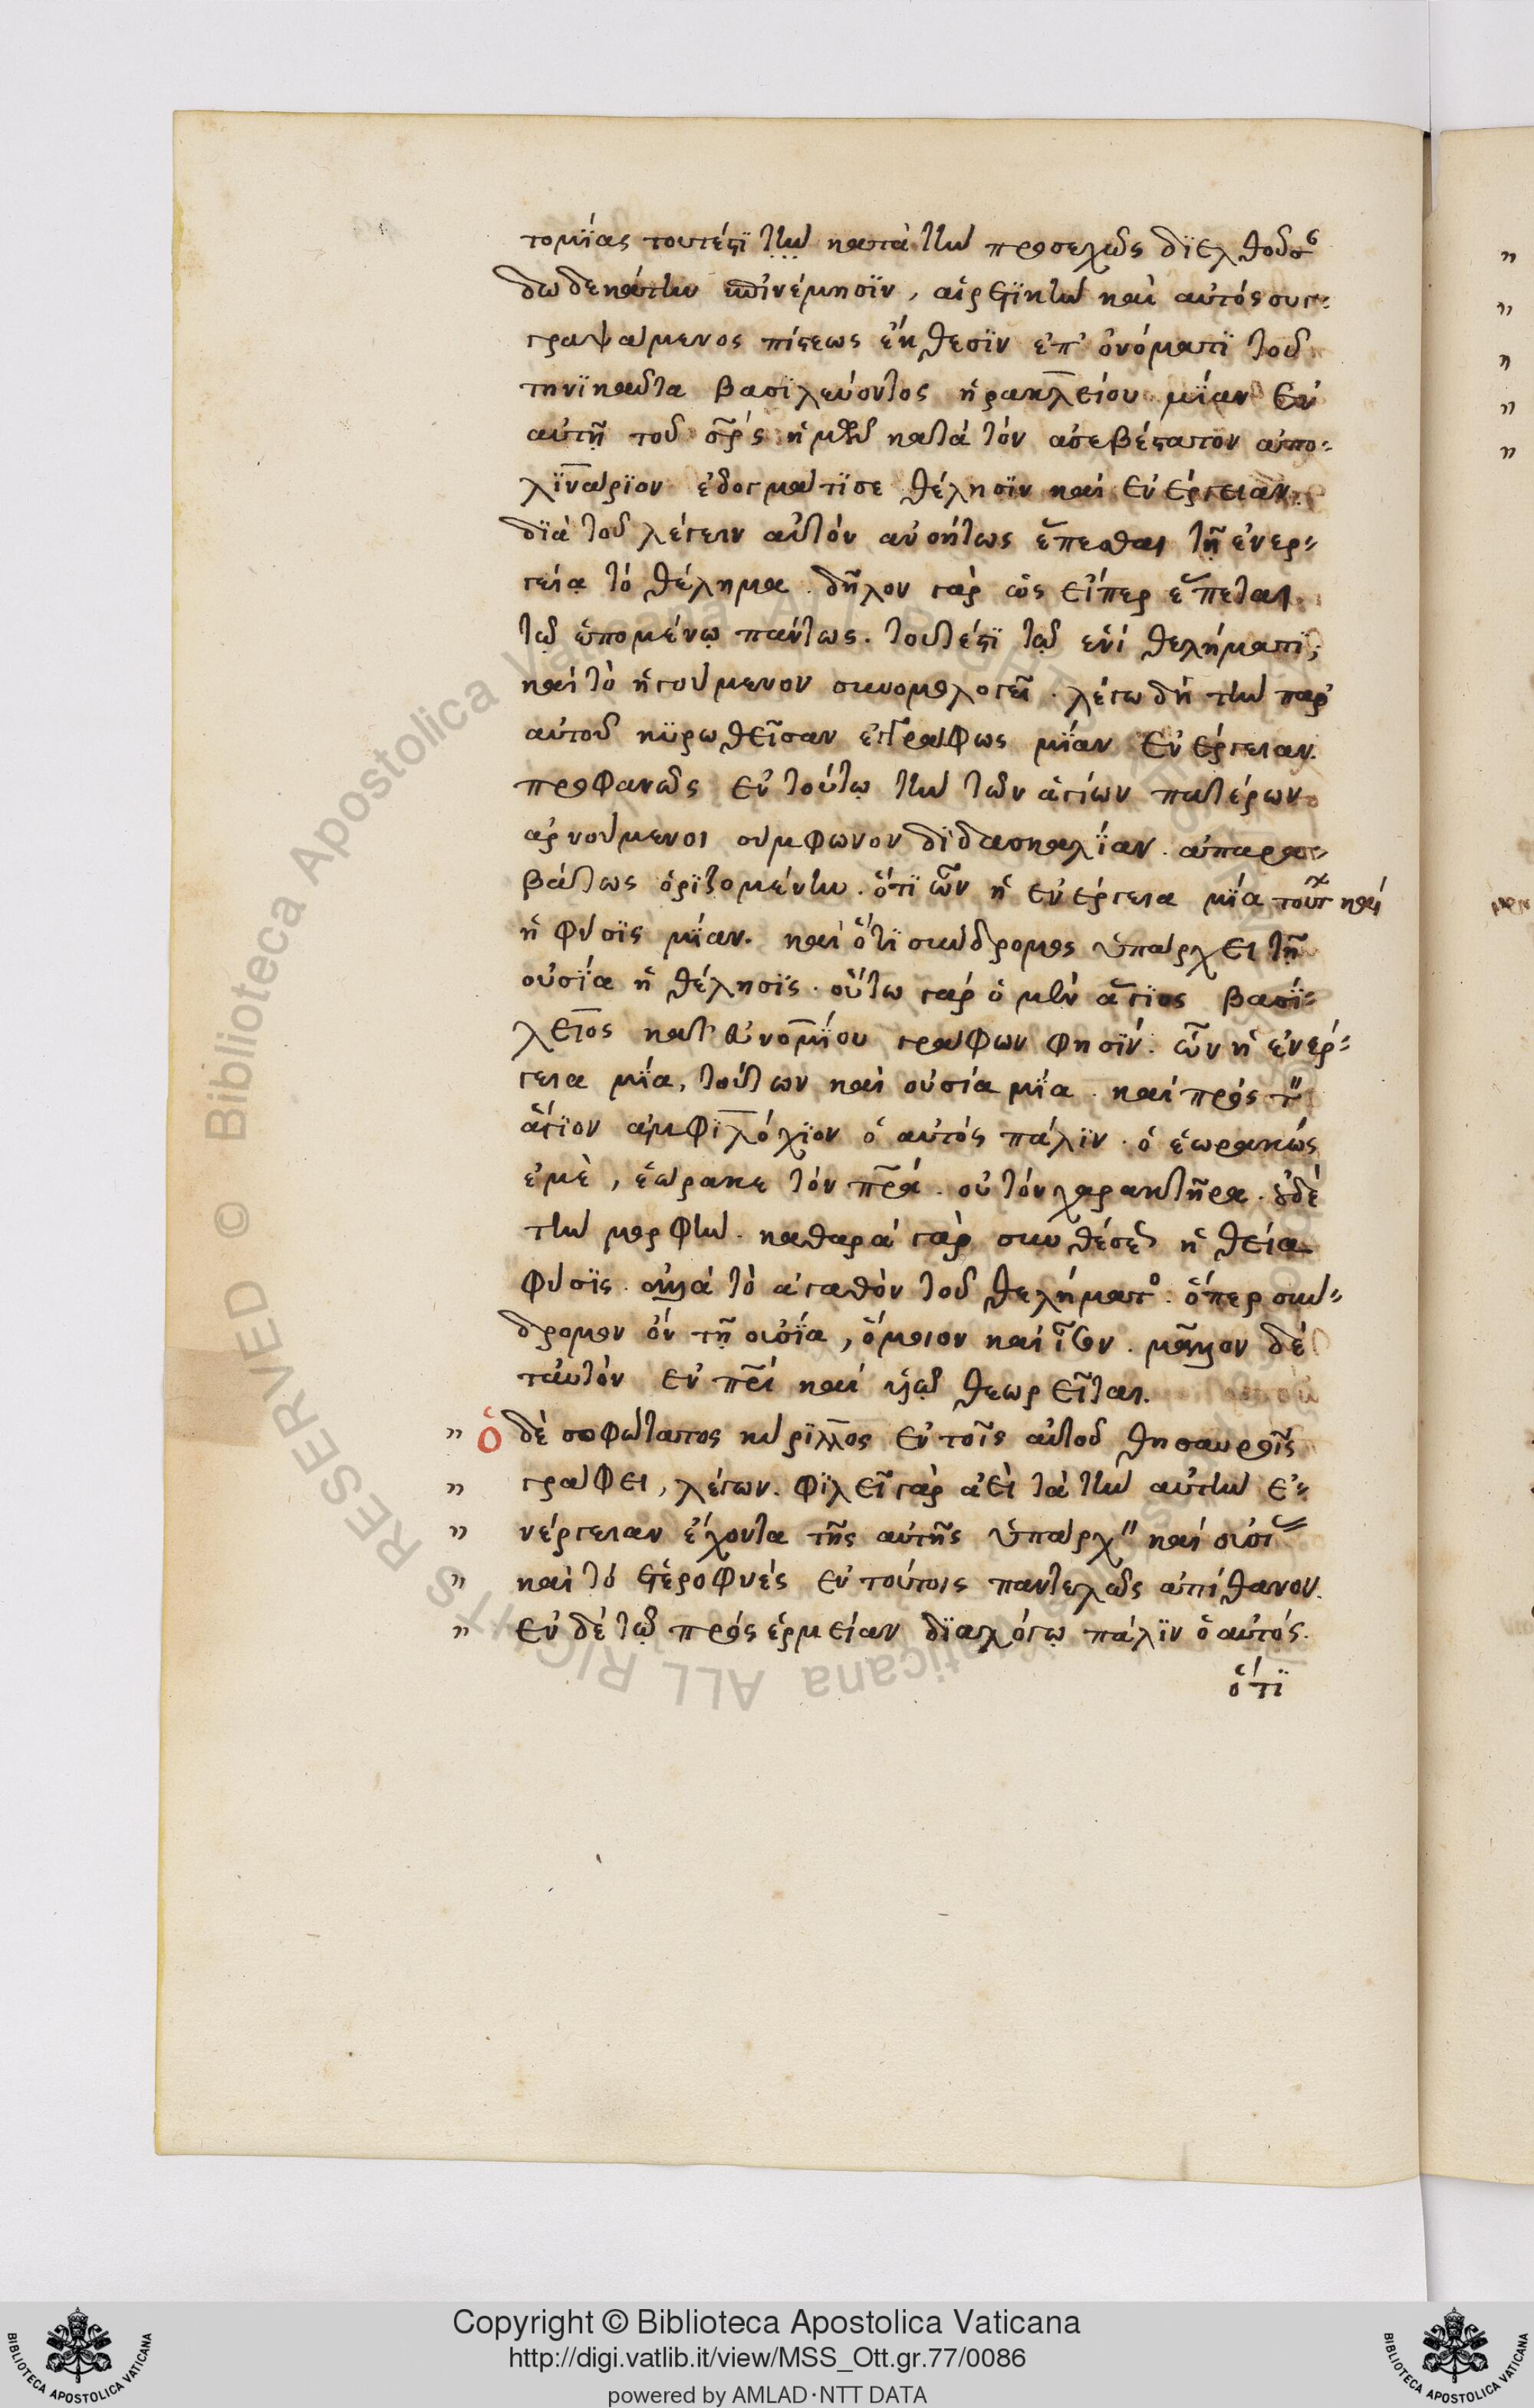 τομίας τουτέστι τὴν κατὰ τὴν προσεχῶς διελθοῦσ
δωδεκάτην ἐπινέμησιν, αἱρετικὴν καὶ αὐτὸς συγ-
γραψάμενος πίστεως ἔκθεσιν ἐπ' ὀνόματι τοῦ
τηνικαῦτα βασιλεύοντος ἡρακλείου μίαν ἐν
αὐτῇ τοῦ σρς ἡμῶν κατὰ τὸν ἀσεβέστατον ἀπο-
λινάριον ἐδογμάτισε θέλησιν καὶ ἐνέργειαν.
διὰ τοῦ λέγειν αὐτὸν ἀνοήτως ἕπεσθαι τῇ ἐνερ-
γείᾳ τὸ θέλημα. δῆλον γὰρ ὡς εἴπερ ἕπεται
τῷ ἑπομένῳ πάντως. τουτέστι τῷ ἑνὶ θελήματι,
καὶ τὸ ἡγούμενον συνομολογεῖ. λέγω δὴ τὴν παρ'
αὐτοῦ κυρωθεῖσαν ἐγγράφως μίαν ἐνέργειαν.
προφανῶς ἐν τούτῳ τὴν τῶν ἁγίων πατέρων
ἀρνούμενοι σύμφωνον διδασκαλίαν. ἀπαρα-
βάτως ὁριζομένην. ὅτι ὧν ἡ ἐνέργεια μία τούτ καὶ
ἡ φύσις μίαν. καὶ ὅτι σύνδρομος ὑπάρχει τῇ
οὐσίᾳ ἡ θέλησις. οὕτω γὰρ ὁ μὲν ἅγιος βασί-
λειος κατ' εὐνομίου γράφων φησίν. ὧν ἡ ἐνέρ-
γεια μία, τούτων καὶ οὐσία μία. καὶ πρὸς τ
ἅγιον ἀμφιλόχιον ὁ αὐτὸς πάλιν. ὁ ἑωρακὼς
ἐμὲ, ἑώρακε τὸν πρα. οὐ τὸν χαρακτῆρα. οὐδὲ
τὴν μορφήν. καθαρὰ γὰρ συνθέσε ἡ θεία
φύσις. ἀλλὰ τὸ ἀγαθὸν τοῦ θελήματο. ὅπερ σύν-
δρομον ὂν τῇ οὐσίᾳ, ὅμοιον καὶ ἴσον. μᾶλλον δὲ
ταὐτὸν ἐν πρι καὶ υἱῷ θεωρεῖται.
" ὁ δὲ σοφώτατος κύριλλος ἐν τοῖς αὐτοῦ θησαυροῖς
" γράφει, λέγων. φιλεῖ γὰρ ἀεὶ τὰ τὴν αὐτὴν ἐ-
" νέργειαν ἔχοντα τῆς αὐτῆς ὑπάρχ καὶ οὐσί
" καὶ τὸ ἑτεροφυές ἐν τούτοις παντελῶς ἀπίθανον.
" ἐν δὲ τῷ πρὸς ἑρμείαν διαλόγῳ πάλιν ὁ αὐτός.
ὅτι
Biblioteca Apostolica Vaticana ALL RIGHTS RESERVED ©
Copyright © Biblioteca Apostolica Vaticana
http://digi.vatlib.it/view/MSS_Ott.gr.77/0086
powered by AMLAD·NTT DATA
BIBLIOTECA APOSTOLICA VATICANA
BIBLIOTECA APOSTOLICA VATICANA